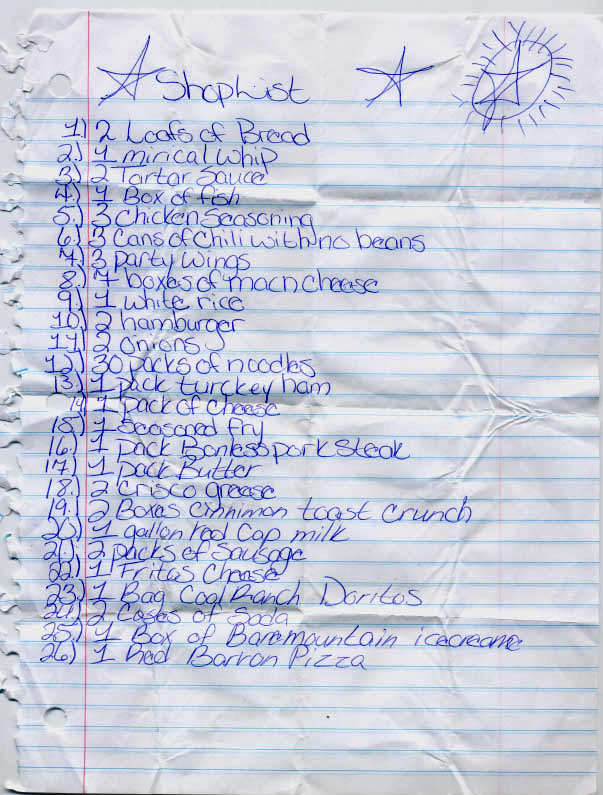 Shop List
1.) 2 Loafs of Bread
2.) 1 mirical whip
3.) 2 Tartar Sauce
4.) 1 Box of fish
5.) 3 Chicken Seasoning
6.) 3 Cans of Chili with no beans
7.) 3 party wings
8.) 7 boxes of mac n cheese
9.) 1 white rice
10.) 2 hamburger
11.) 2 onions
12.) 30 packs of noodles
13.) 1 pack turckey ham
14) 1 pack of cheese
15.) 1 seasoned fry
16.) 1 pack Bonless pork steak
17.) 1 pack Butter
18.) 2 Crisco grease
19.) 2 Boxes Cinnimon toast Crunch
20.) 1 gallon red Cap milk
21.) 2 packs of sausage
22.) 1 Fritas Cheese
23.) 1 Bag Cool Ranch Doritos
24.) 2 Cases of Soda
25.) 1 Box of Baremountain icecreame
26.) 1 Red Barron Pizza